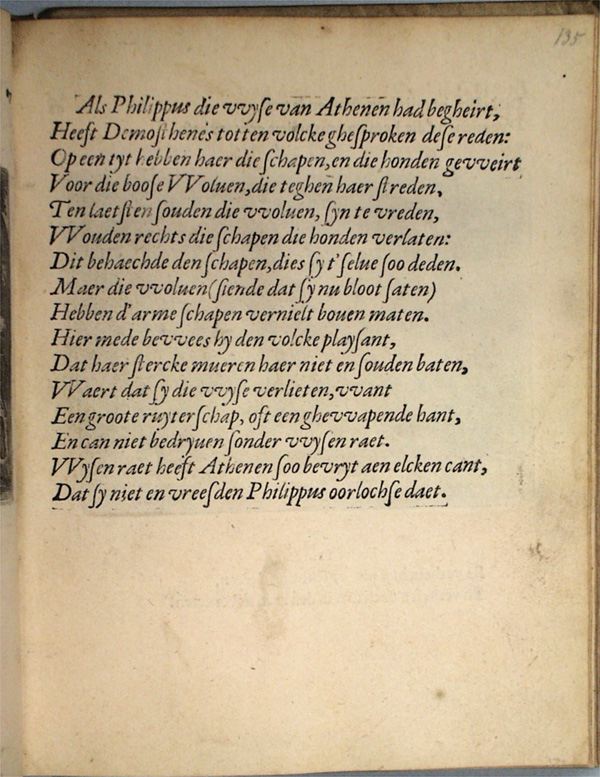 135
Als Philippus die vvyſe van Athenen had begheirt,
Heeft Demoſthenes totten volcke gheſproken deſe reden:
Op een tyt hebben haer die ſchapen, en die honden gevveirt
Voor die booſe VVoluen, die teghen haer ſtreden,
Ten laetſten ſouden die vvoluen, ſyn te vreden,
VVouden rechts die ſchapen die honden verlaten:
Dit behaechde den ſchapen, dies ſy t'ſelue ſoo deden.
Maer die vvoluen (ſiende dat ſy nu bloot ſaten)
Hebben d'arme ſchapen vernielt bouen maten.
Hier mede bevvees hy den volcke playſant,
Dat haer ſtercke mueren haer niet en ſouden baten,
VVaert dat ſy die vvyſe verlieten, vvant
Een groote ruyterſchap, oft een ghevvapende hant,
En can niet bedryuen ſonder vvyſen raet.
VVyſen raet heeft Athenen ſoo bevryt aen elcken cant,
Dat ſy niet en vreeſden Philippus oorlochſe daet.